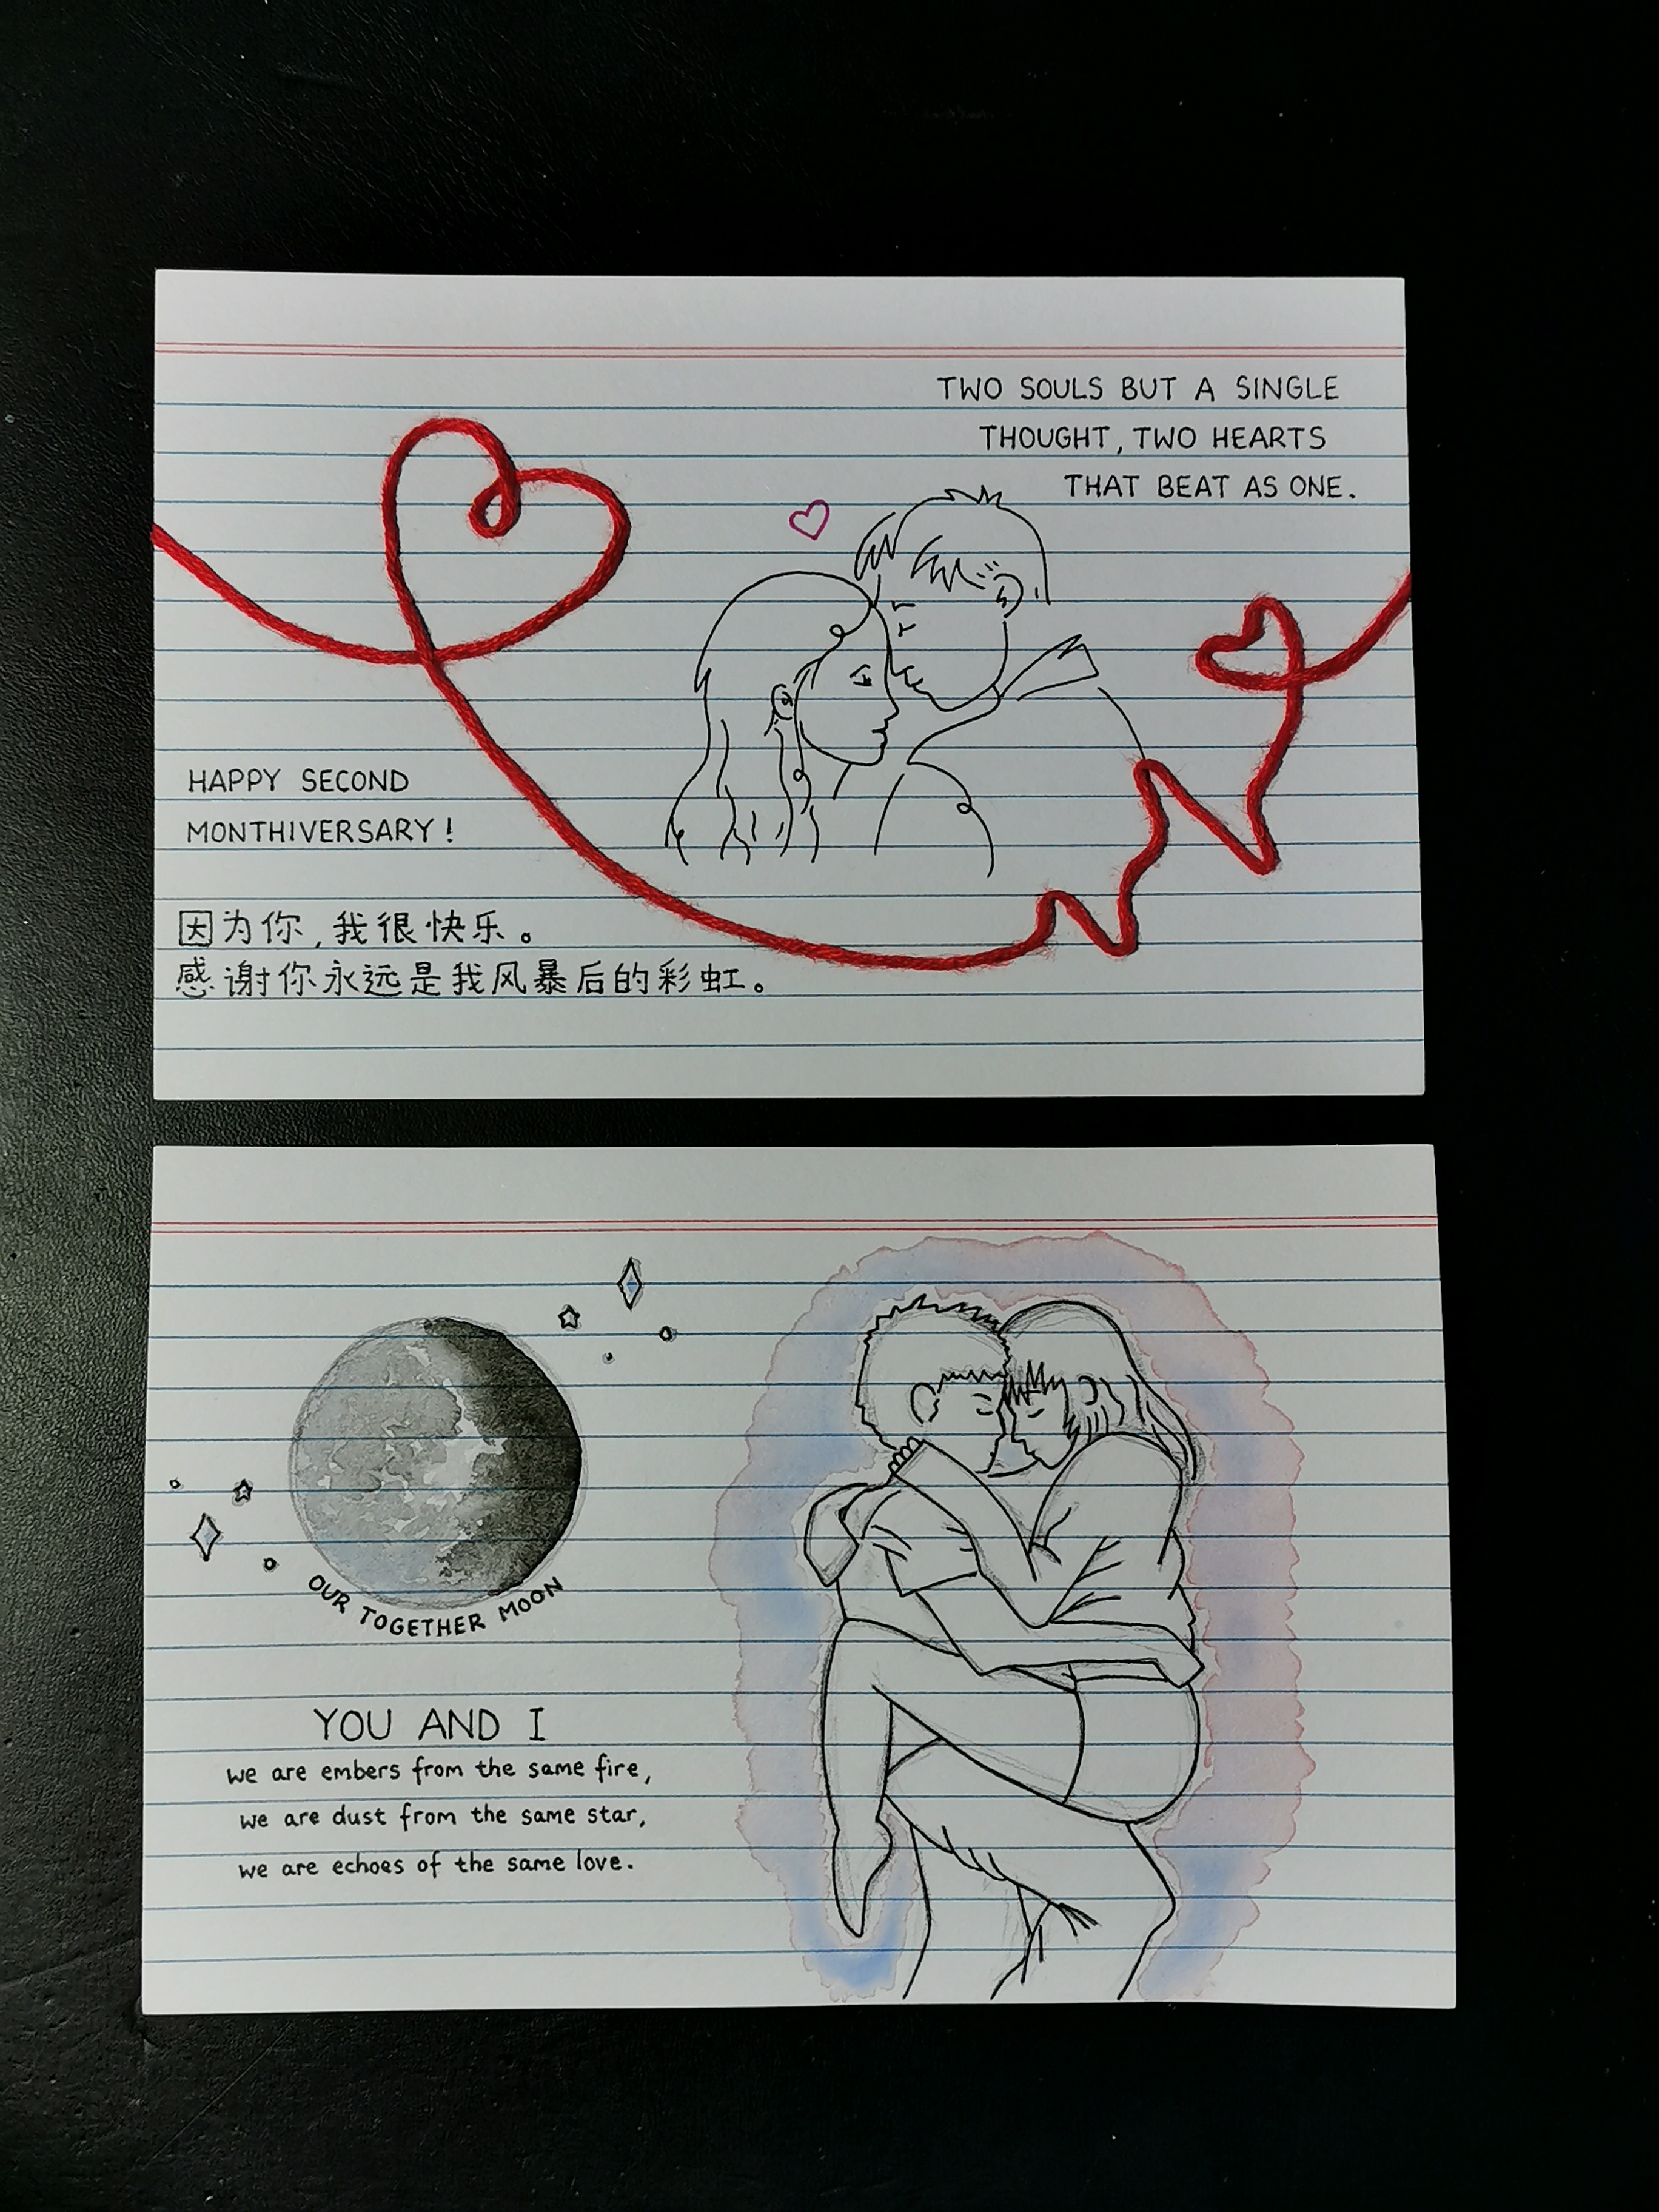 TWO SOULS BUT A SINGLE
THOUGHT, TWO HEARTS
THAT BEAT AS ONE.
HAPPY SECOND
MONTHIVERSARY!
因为你,我很快乐。
感谢你永远是我风暴后的彩虹。
OUR TOGETHER MOON
YOU AND I
we are embers from the same fire,
we are dust from the same star,
we are echoes of the same love.